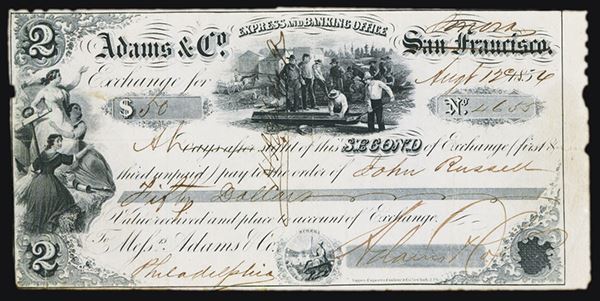 2
EXPRESS AND BANKING OFFICE
Sonora
Adams & Co. San Francisco.
Exchange for Augt 12th 1854
$ 50 No.
At sight of this SECOND of Exchange (first &
third unpaid) pay to the order of John Russell
Fifty Dollars
Value received and place to account of Exchange.
To Mess.rs Adams & Co. Adams & Co
Philadelphia
2